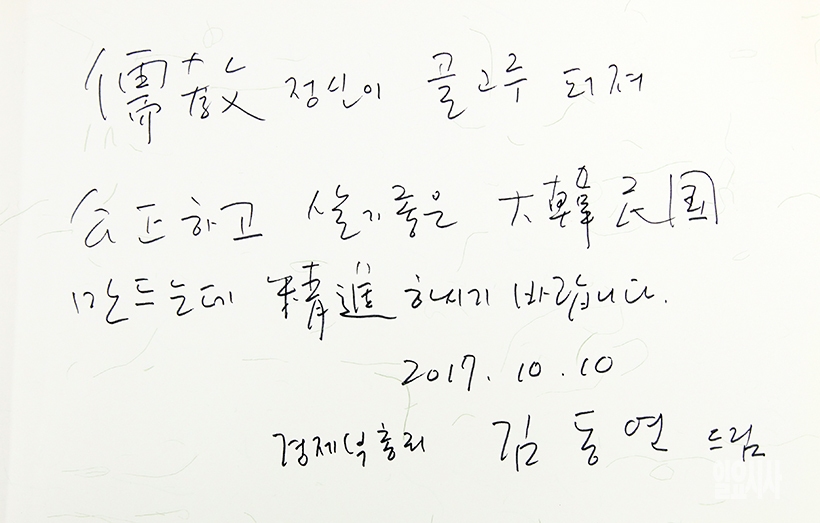 儒敎 정신이 골고루 퍼져
公正하고 살기좋은 大韓民国
만드는데 精進하시기 바랍니다.
2017. 10. 10
경제부총리 김동연 드림
일요시사